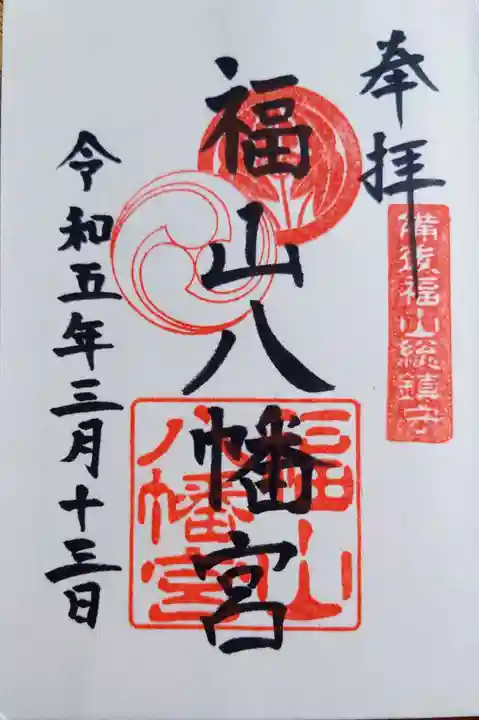 奉拝
備後福山総鎮守
福山八幡宮
福山
八幡宮
令和五年三月十三日